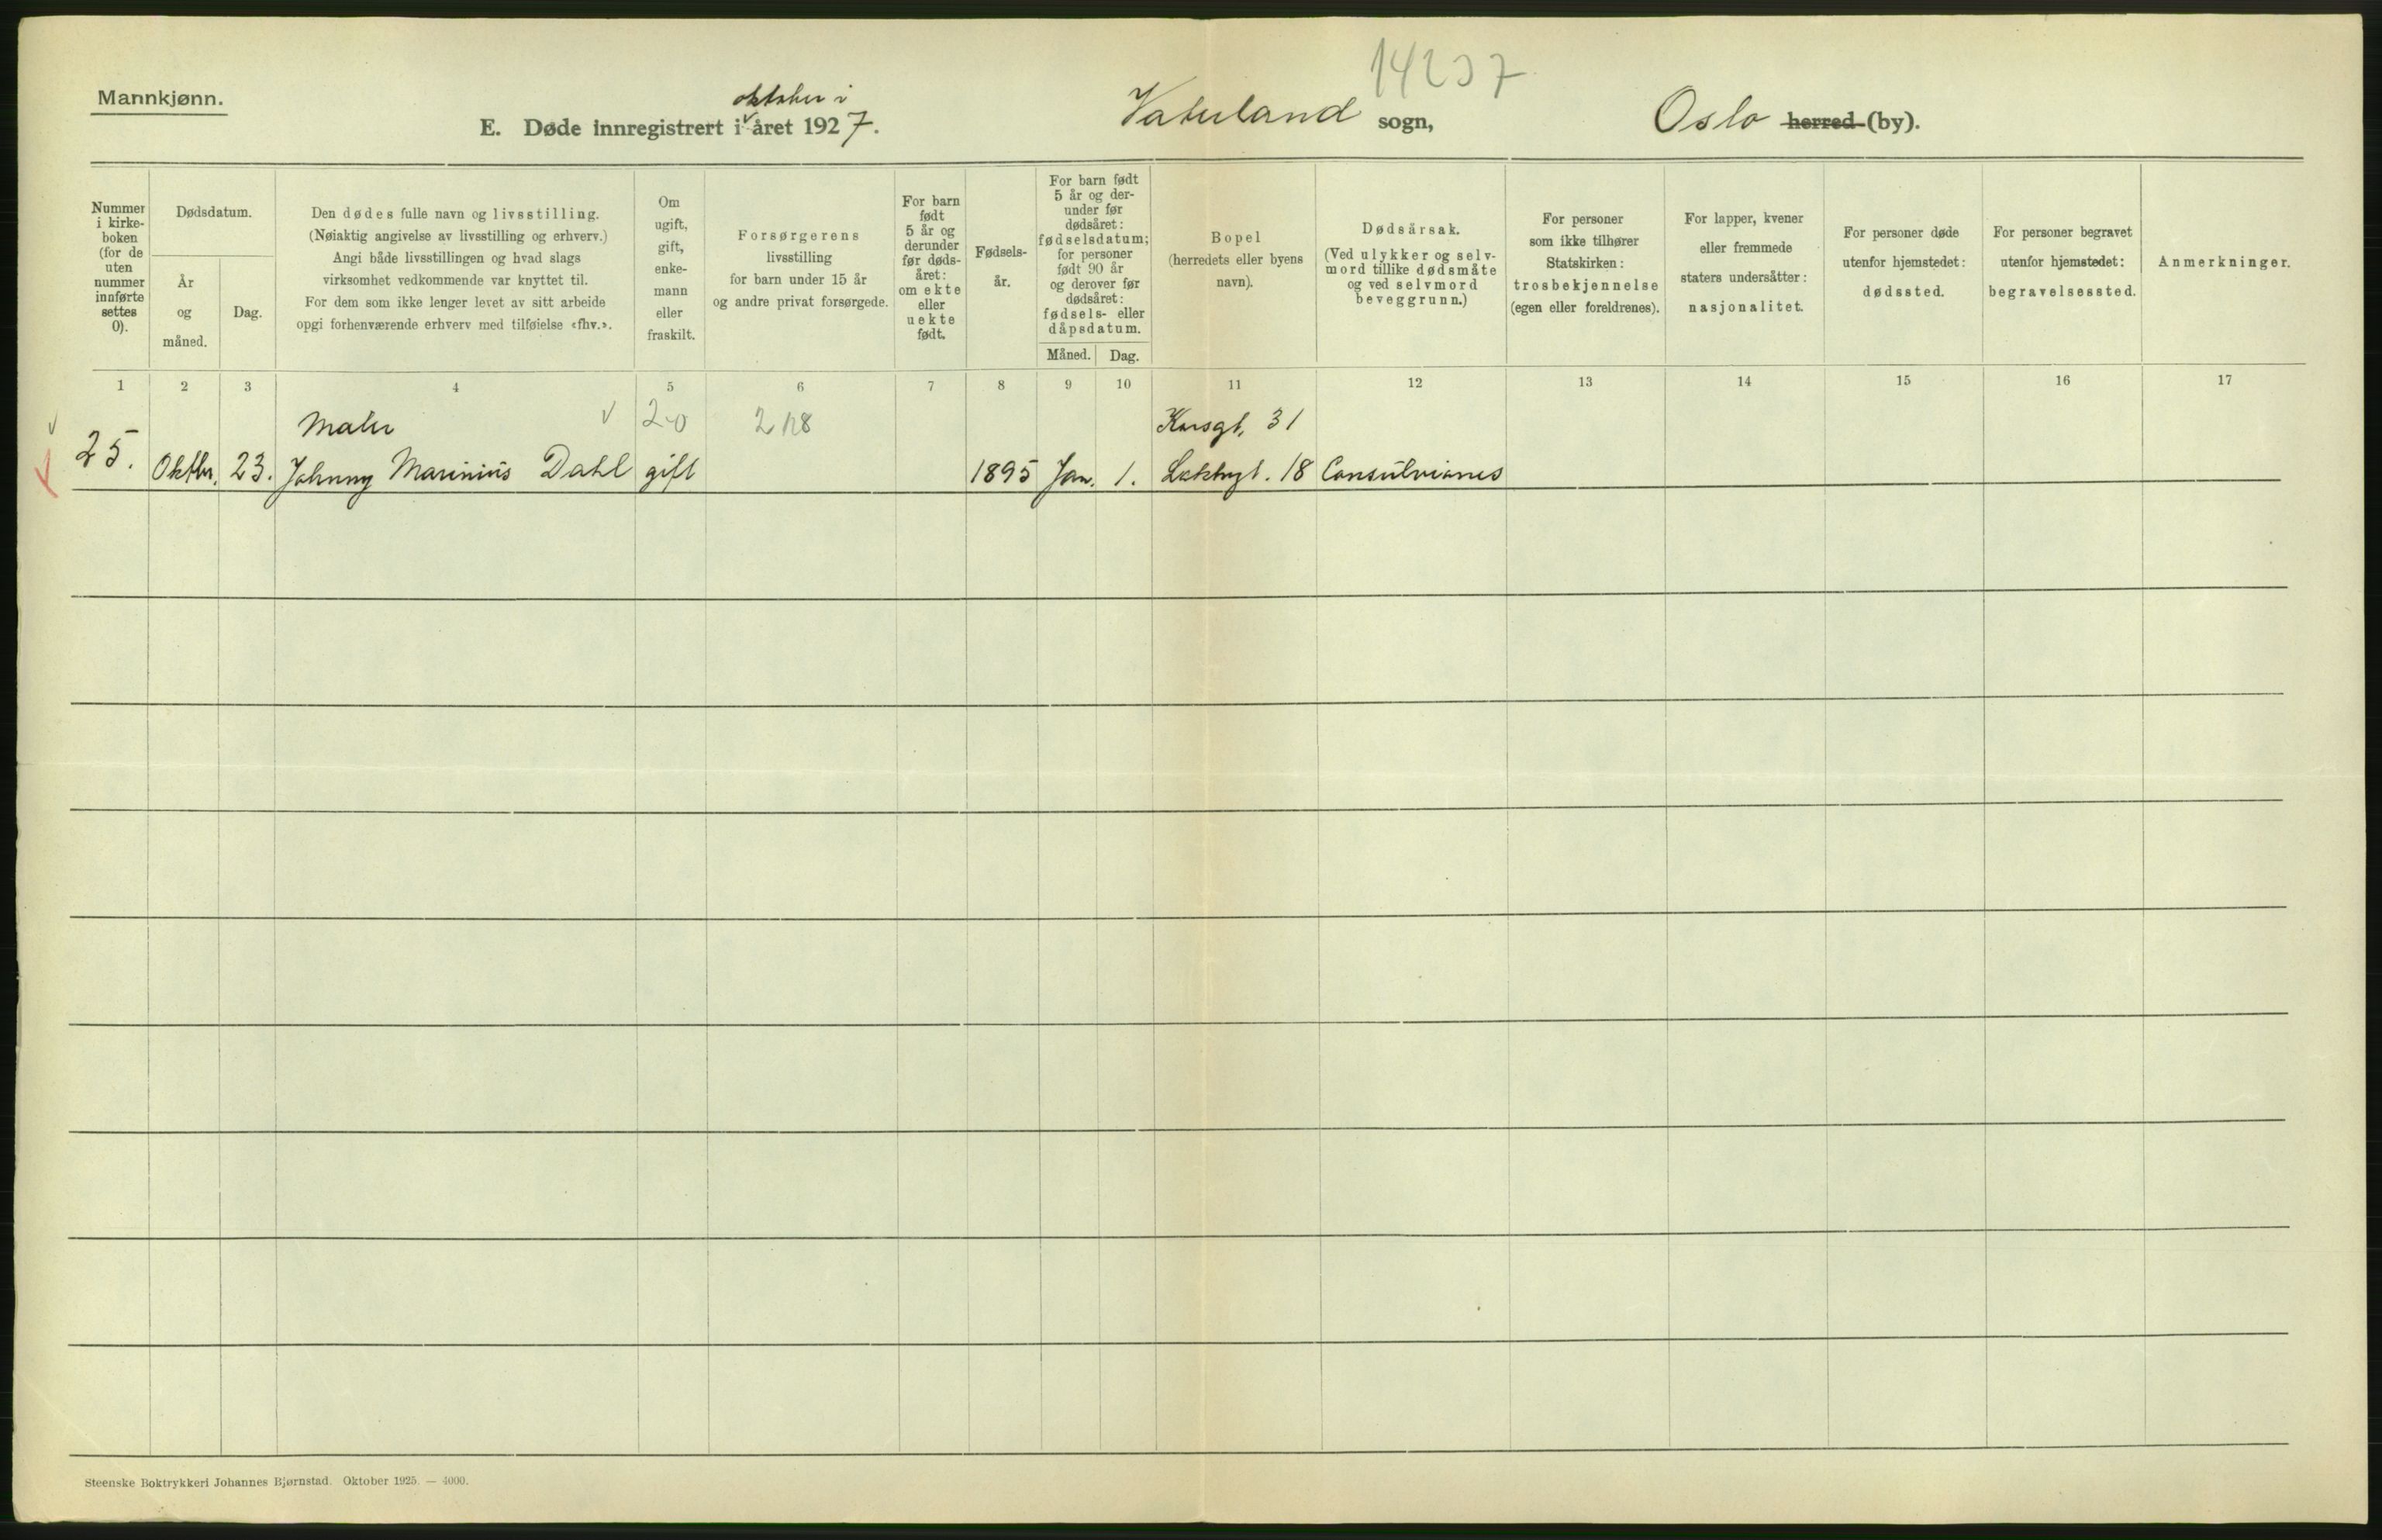 14237
Mannkjønn.
oktober i
E. Døde innregistrert i året 1927.
Vaterland sogn,
Oslo herred (by).
Nummer i kirke-boken (for de uten nummer innførte settes 0).
Dødsdatum.
År og måned.
Dag.
Den dødes fulle navn og livsstilling.
(Nøiaktig angivelse av livsstilling og erhverv.)
Angi både livsstillingen og hvad slags
virksomhet vedkommende var knyttet til.
For dem som ikke lenger levet av sitt arbeide
opgi forhenværende erhverv med tilføielse «fhv.».
Om ugift, gift, enke-mann eller fraskilt.
Forsørgerens
livsstilling
for barn under 15 år
og andre privat forsørgede.
For barn født 5 år og derunder før døds-året: om ekte eller uekte født.
Fødsels-år.
For barn født 5 år og der-under før dødsåret: fødselsdatum; for personer født 90 år og derover før dødsåret: fødsels- eller dåpsdatum.
Måned.
Dag.
Bopel
(herredets eller byens
navn).
Dødsårsak.
(Ved ulykker og selv-
mord tillike dødsmåte
og ved selvmord
beveggrunn.)
For personer
som ikke tilhører
Statskirken:
trosbekjennelse
(egen eller foreldrenes).
For lapper, kvener
eller fremmede
staters undersåtter:
nasjonalitet.
For personer døde
utenfor hjemstedet:
dødssted.
For personer begravet
utenfor hjemstedet:
begravelsessted.
Anmerkninger.
1 2 3 4 5 6 7 8 9 10 11 12 13 14 15 16 17
Maler 20 Karsgt. 31
25. Oktbr. 23. Johnny Marinius Dahl gift 1895 Jan. 1. Lakkegt. 18
Steenske Boktrykkeri Johannes Bjørnstad. Oktober 1925. — 4000.